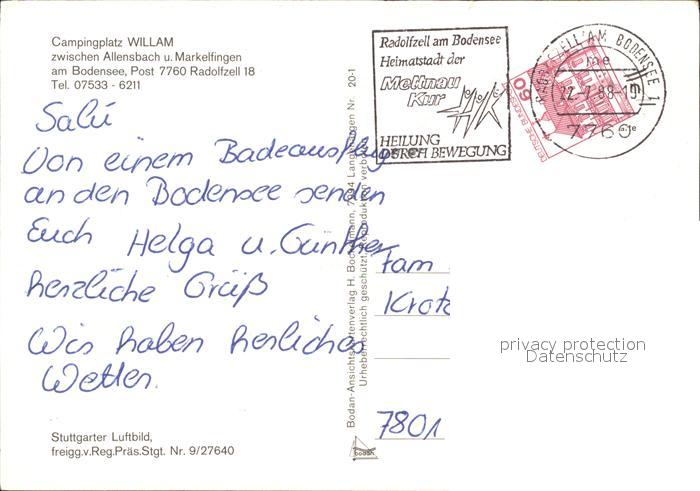 Campingplatz WILLAM
zwischen Allensbach u. Markelfingen
am Bodensee, Post 7760 Radolfzell 18
Tel. 07533 - 6211
Salü
Von einem Badeausflug
an den Bodensee senden
Euch Helga u. Günther
herzliche Grüß
Wir haben herliches
Wetter.
Stuttgarter Luftbild,
freigg.v.Reg.Präs.Stgt. Nr. 9/27640
Bodan-Ansichtskartenverlag H. Bockelmann, Langenargen Nr. 20-1
Urheberrechtlich geschützt. Reproduktion verboten
BODAN
Radolfzell am Bodensee
Heimatstadt der
Mettnau
Kur
HEILUNG
DURCH BEWEGUNG
60
DEUTSCHE BUNDES
RADOLFZELL AM BODENSEE 1
me
22.-7.88-19
7760
Fam
Kratz
7801
privacy protection
Datenschutz